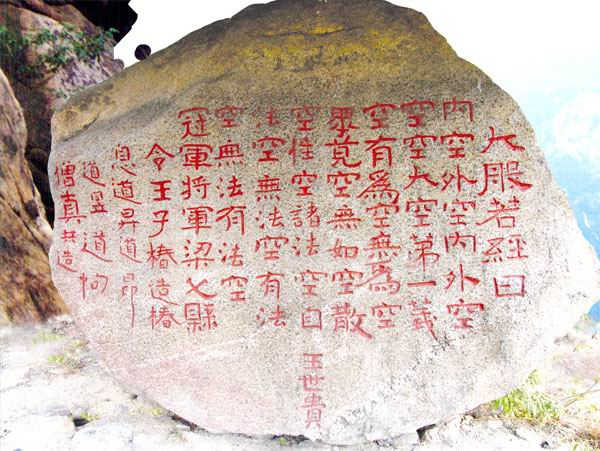 大般若經曰
内空外空内外空
空空大空第一義
空有為空無為空
畢竟空無如空散
空性空諸法空自
空無法空有法
空無法有法空
冠軍將軍梁父縣
令王子椿造椿
息道昇道昂
道昱道恂
僧真共造
王世貴